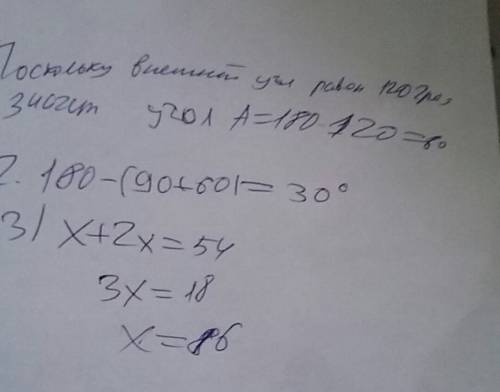 Поскольку внешний угол равен 120 гра,
значит угол A=180-120=60
2. 180-(90+60)=30°
3) x+2x=54
3x=18
x=